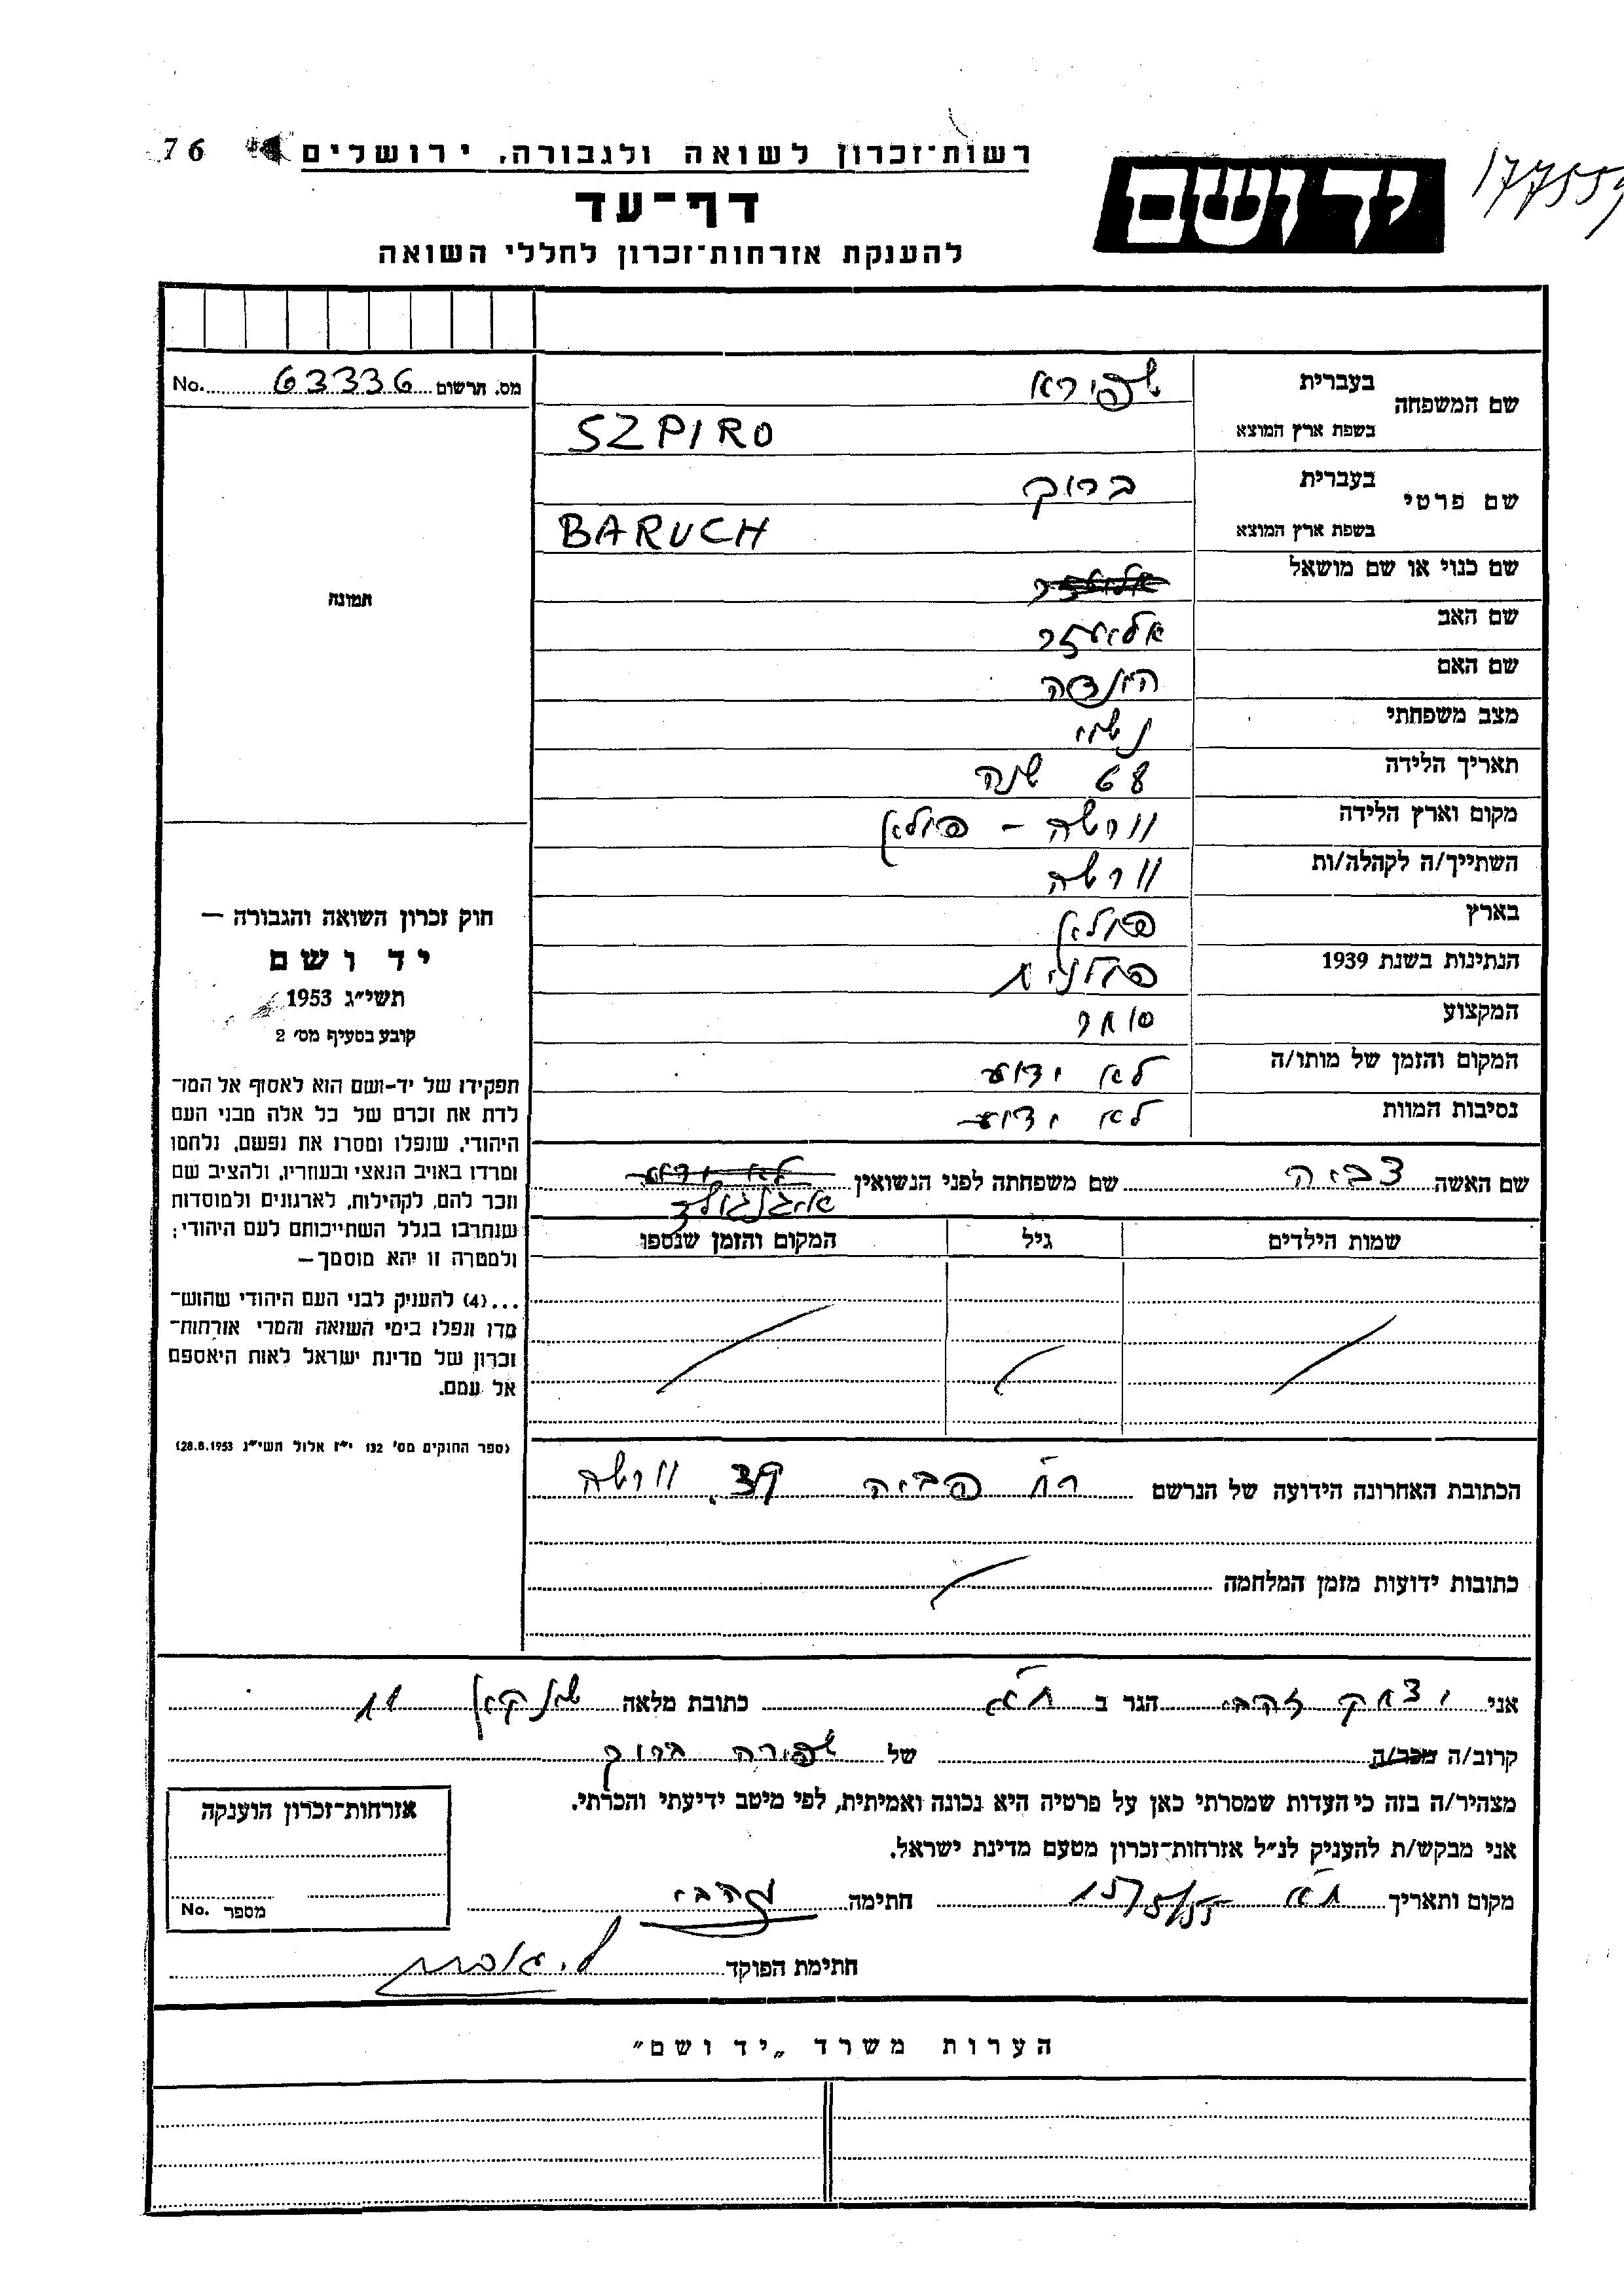 177559
ידושם
רשות־זכרון לשואה ולגבורה, ירושלים
76
דף־עד
להענקת אזרחות־זכרון לחללי השואה
מס. תרשום 63336 No.
תמונה
חוק זכרון השואה והגבורה —
יד ושם
תשי״ג 1953
קובע בסעיף מס׳ 2
תפקידו של יד-ושם הוא לאסוף אל המו־
לדת את זכרם של כל אלה מבני העם
היהודי, שנפלו ומסרו את נפשם, נלחמו
ומרדו באויב הנאצי ובעוזריו, ולהציב שם
וזכר להם, לקהילות, לארגונים ולמוסדות
שנחרבו בגלל השתייכותם לעם היהודי;
ולמטרה זו יהא מוסמך—
...(4) להעניק לבני העם היהודי שהוש־
מדו ונפלו בימי השואה והמרי אזרחות־
זכרון של מדינת ישראל לאות היאספם
אל עמם.
(ספר החוקים מס׳ 132 י״ז אלול תשי״ג 28.8.1953)
שם המשפחה
בעברית שפירא
בשפת ארץ המוצא SZPIRO
שם פרטי
בעברית ברוך
בשפת ארץ המוצא BARUCH
שם כנוי או שם מושאל אליעזר
שם האב אליעזר
שם האם
מצב משפחתי נשוי
תאריך הלידה 68 שנה
מקום וארץ הלידה וורשה – פולין
השתייך/ה לקהלה/ות וורשה
בארץ פולין
הנתינות בשנת 1939 פולנית
המקצוע סוחר
המקום והזמן של מותו/ה לא ידוע
נסיבות המוות לא ידוע
שם האשה צביה שם משפחתה לפני הנשואין לא ידוע
שמות הילדים גיל המקום והזמן שנספו
הכתובת האחרונה הידועה של הנרשם רח' פביה וורשה
כתובות ידועות מזמן המלחמה
אני יצחק זהבי הגר ב ת"א כתובת מלאה שינקין 11
קרוב/ה מכר/ה של שפירה ברוך
מצהיר/ה בזה כי העדות שמסרתי כאן על פרטיה היא נכונה ואמיתית, לפי מיטב ידיעתי והכרתי.
אני מבקש/ת להעניק לנ״ל אזרחות־זכרון מטעם מדינת ישראל.
מקום ותאריך ת"א חתימה זהבי
חתימת הפוקד
אזרחות־זכרון הוענקה
מספר No.
הערות משרד „יד ושם״